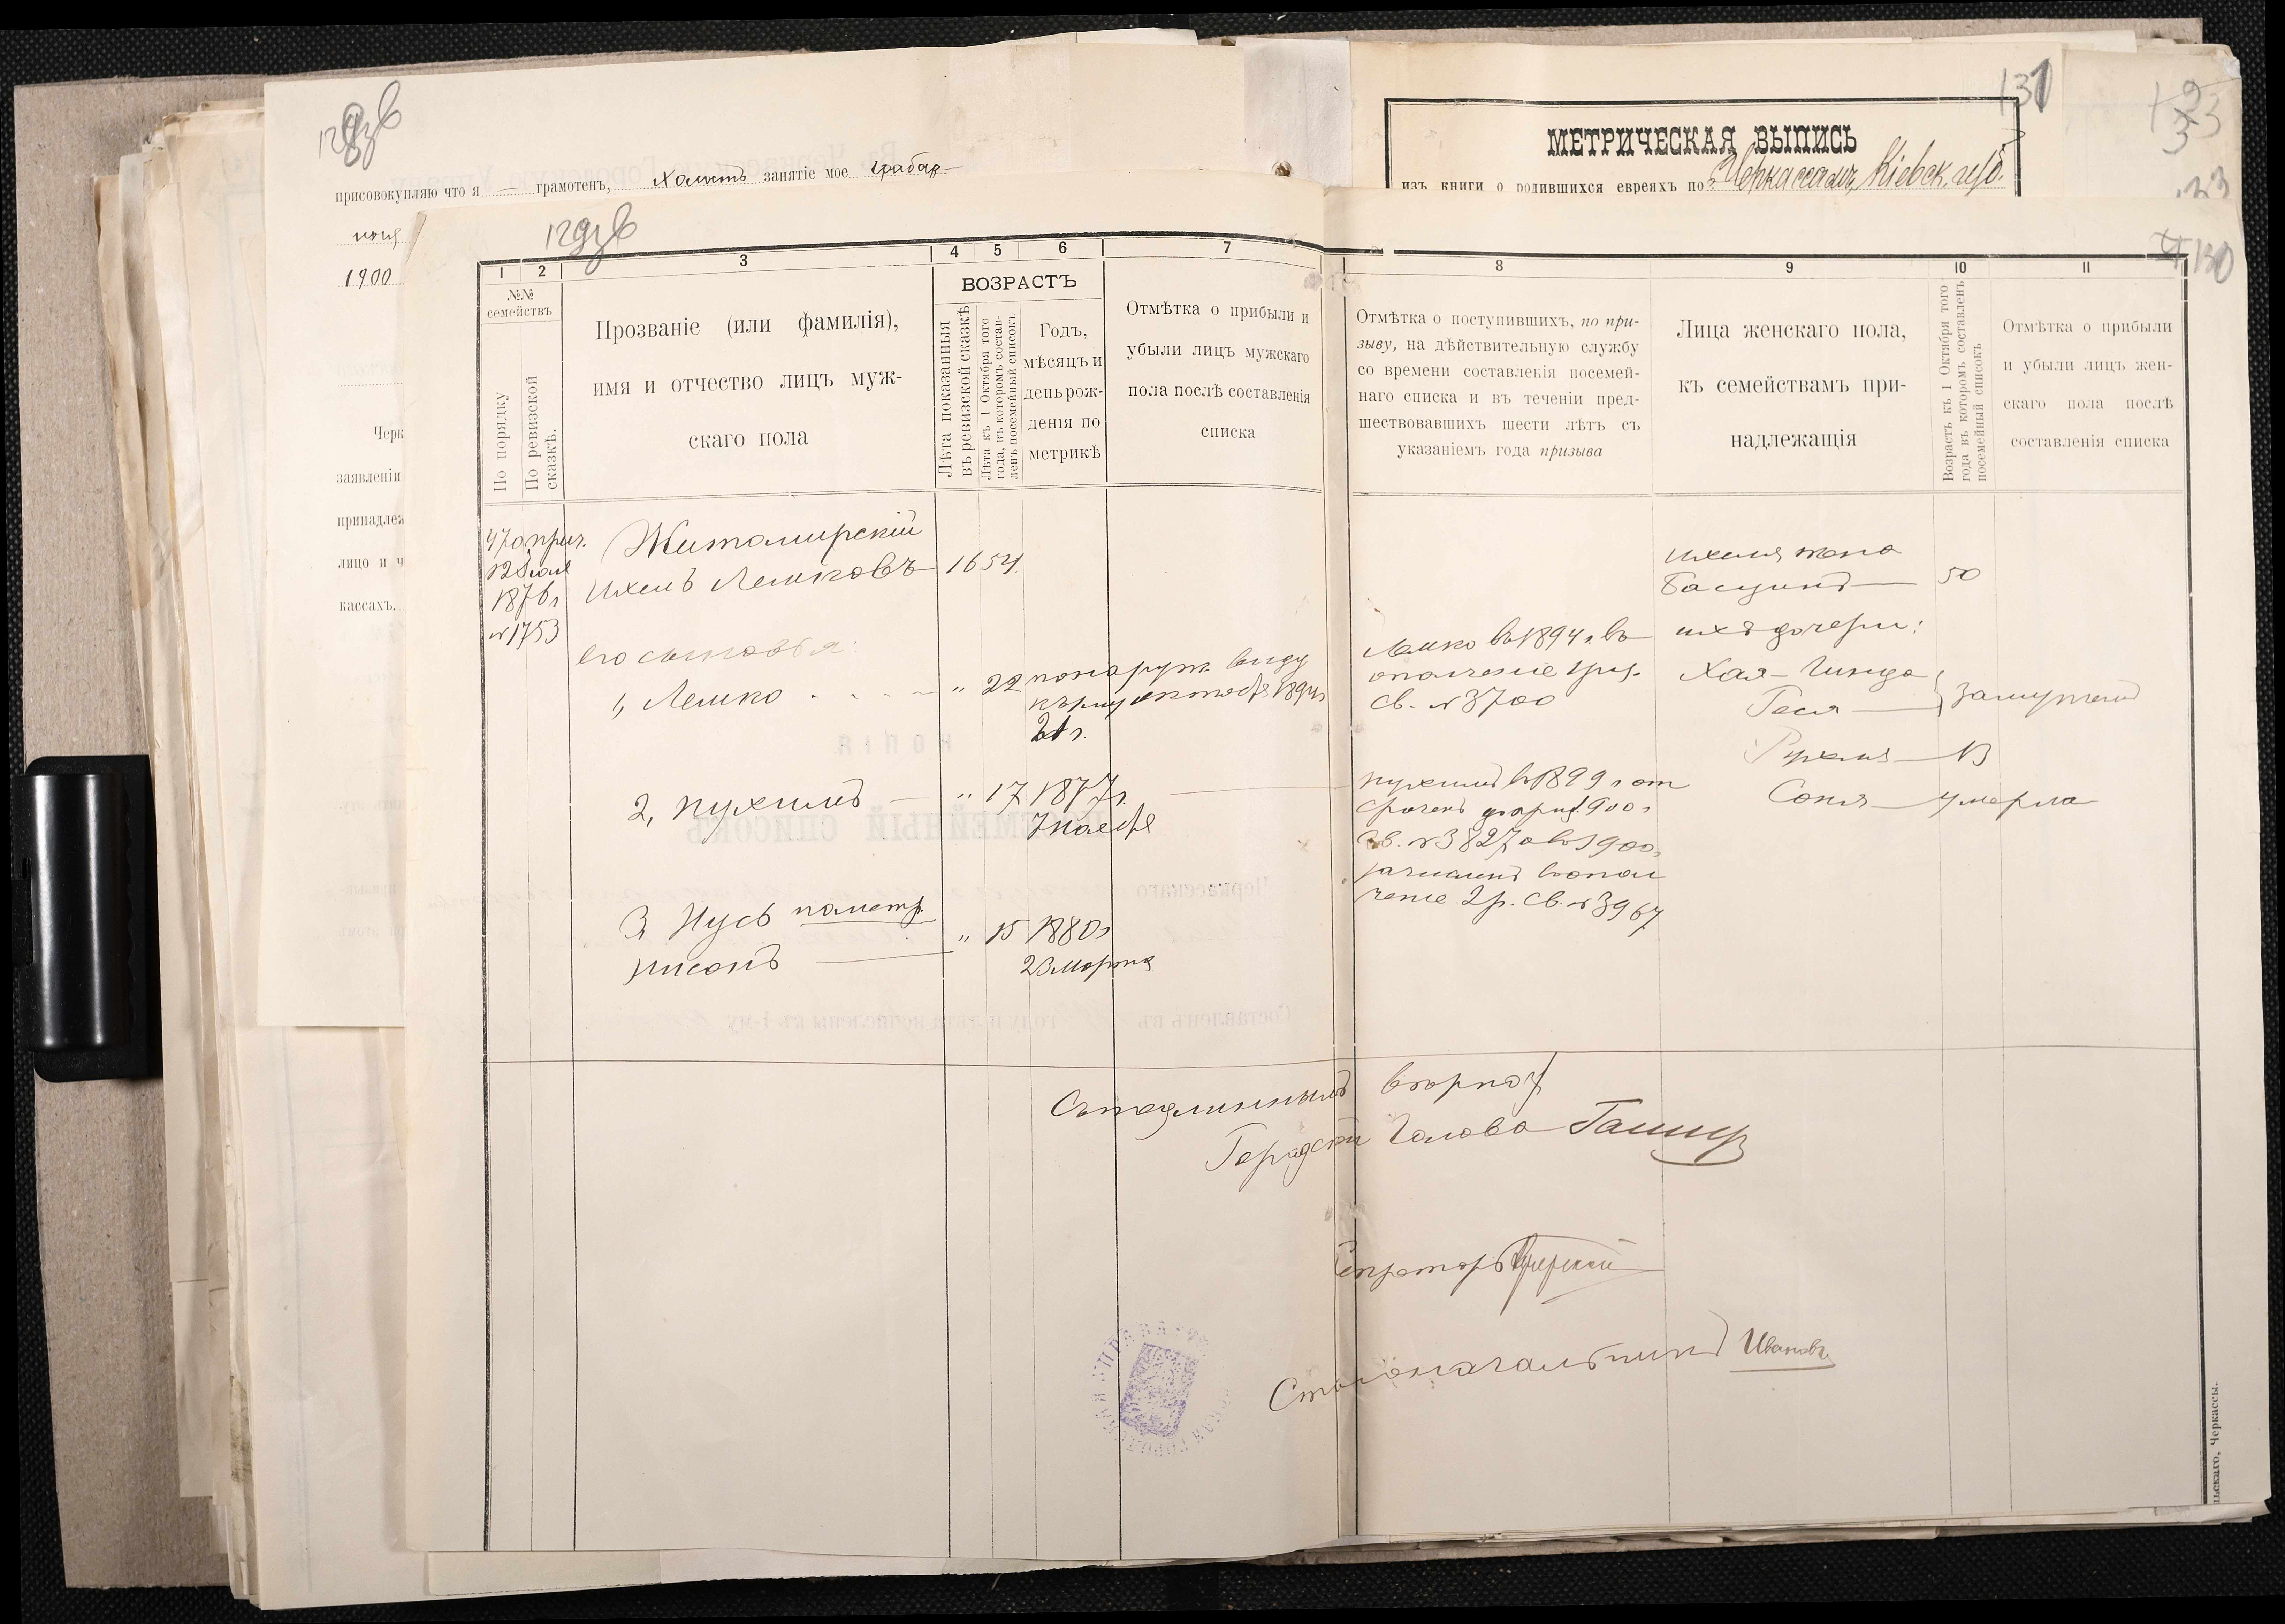 129зв
присовокупляю что я — грамотенъ, холостъ занятіе мое
1900
Черк
заявленіи
принадлеж
лицо и ч
кассахъ.
131
МЕТРИЧЕСКАЯ ВЫПИСЬ
изъ книги о родившихся евреяхъ по г. Черкассамъ, Кіевск. губ.
123
33
129зв
130
1 2 3 4 5 6 7 8 9 10 11
№№ семействъ
По порядку
По ревизской сказкѣ.
Прозваніе (или фамилія),
имя и отчество лицъ муж-
скаго пола
ВОЗРАСТЪ
Лѣта показанныя
въ ревизской сказкѣ
Лѣта къ 1 Октября того
года, въ которомъ состав-
ленъ посемейный списокъ
Годъ,
мѣсяцъ и
день рож-
денія по
метрикѣ
Отмѣтка о прибыли и
убыли лицъ мужскаго
пола послѣ составленія
списка
Отмѣтка о поступившихъ, по при-
зыву, на дѣйствительную службу
со времени составленія посемей-
наго списка и въ теченіи пред-
шествовавшихъ шести лѣтъ съ
указаніемъ года призыва
Лица женскаго пола,
къ семействамъ при-
надлежащія
Возрастъ къ 1 Октября того
года въ которомъ составленъ
посемейный списокъ
Отмѣтка о прибыли
и убыли лицъ жен-
скаго пола послѣ
составленія списка
470 прич.
12 Іюля
1876 г
№ 1753
Житомирскій
Ихель Лейковъ 16 54
его сыновья:
1, Лейко " 22 по наруж. виду
къ 1му октября 1894 г
21 г.
2, Нухимъ — " 17 1877 г.
7 ноября
3, Нусь по метр.
Нисонъ — " 15 1880 г
23 марта
Лейко въ 1894 г. въ
ополченіе
св. № 3700
Нухимъ въ 1899 г от
сроченъ до приз. 1900 г
св. № 3827 а въ 1900 г.
зачисленъ въ опол
ченіе 2 р. св. № 3967
Ихеля жена
— 50
ихъ дочери:
Хая-Гинда
Геся — замужемъ
Рухля — 13
Соня — умерла
Съ подлиннымъ вѣрно:
Городской Голова
Секретарь
Столоначальникъ Ивановъ
КОПІЯ
ПОСЕМЕЙНЫЙ СПИСОКЪ
Черкасскаго
Составленъ въ году и лѣта исчислены къ 1-му
льскаго, Черкассы.